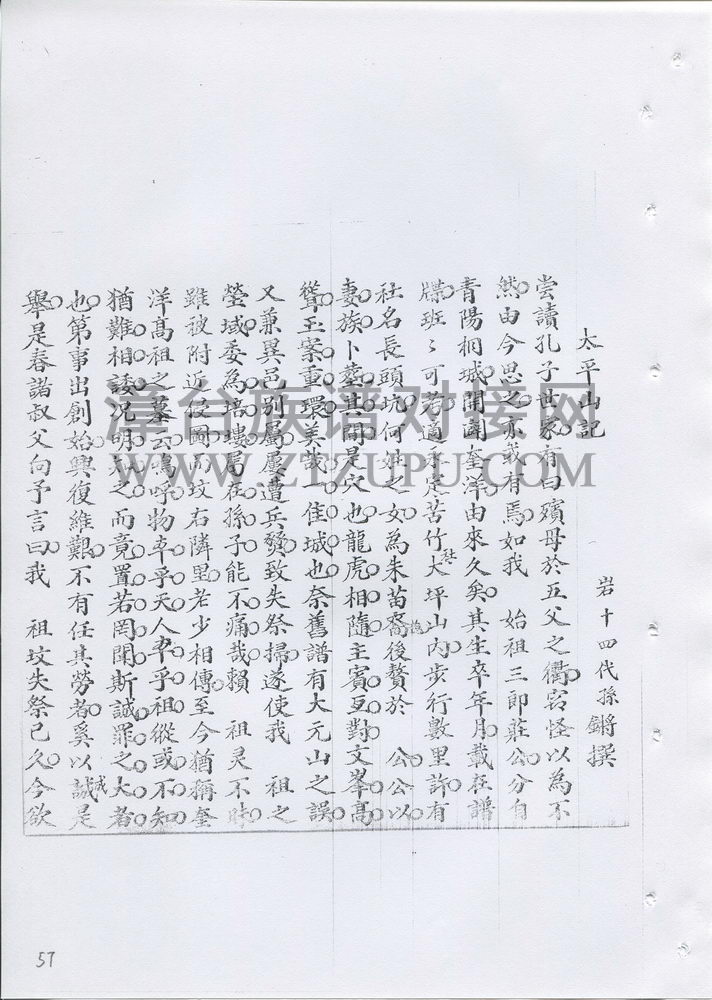 太平山記
岩十四代孫鏘撰
嘗讀孔子世家有曰殯母於五父之衢竊怪以為不
然由今思之亦或有焉如我 始祖三郎莊公分自
青陽桐城開闢奎洋由來久矣其生卒年月載在譜
牒班々可考適永定苦竹社大坪山內步行數里許有
社名長頭坑何姓之女為朱苗裔後贅於 公公以
妻族卜葬其間是穴也龍虎相隨主賓互對文峯高
聳玉案重環美哉佳城也奈舊譜有大元山之誤
又兼異邑別屬屢遭兵發致失祭掃遂使我 祖之
塋域委為培塿屬在孫子能不痛哉賴 祖灵不昧
雖被附近侵圖而坟右隣里老少相傳至今猶稱奎
洋高祖之墓云嗚呼物本乎天人本乎祖縱或不知
猶難相諉況明知之而竟置若罔聞斯誠罪之大者
也第事出創始興復維艱不有任其勞者奚以誠是
舉是春諸叔父向予言曰我 祖坟失祭已久今欲
漳台族谱对接网
WWW.ZTZUPU.COM
57